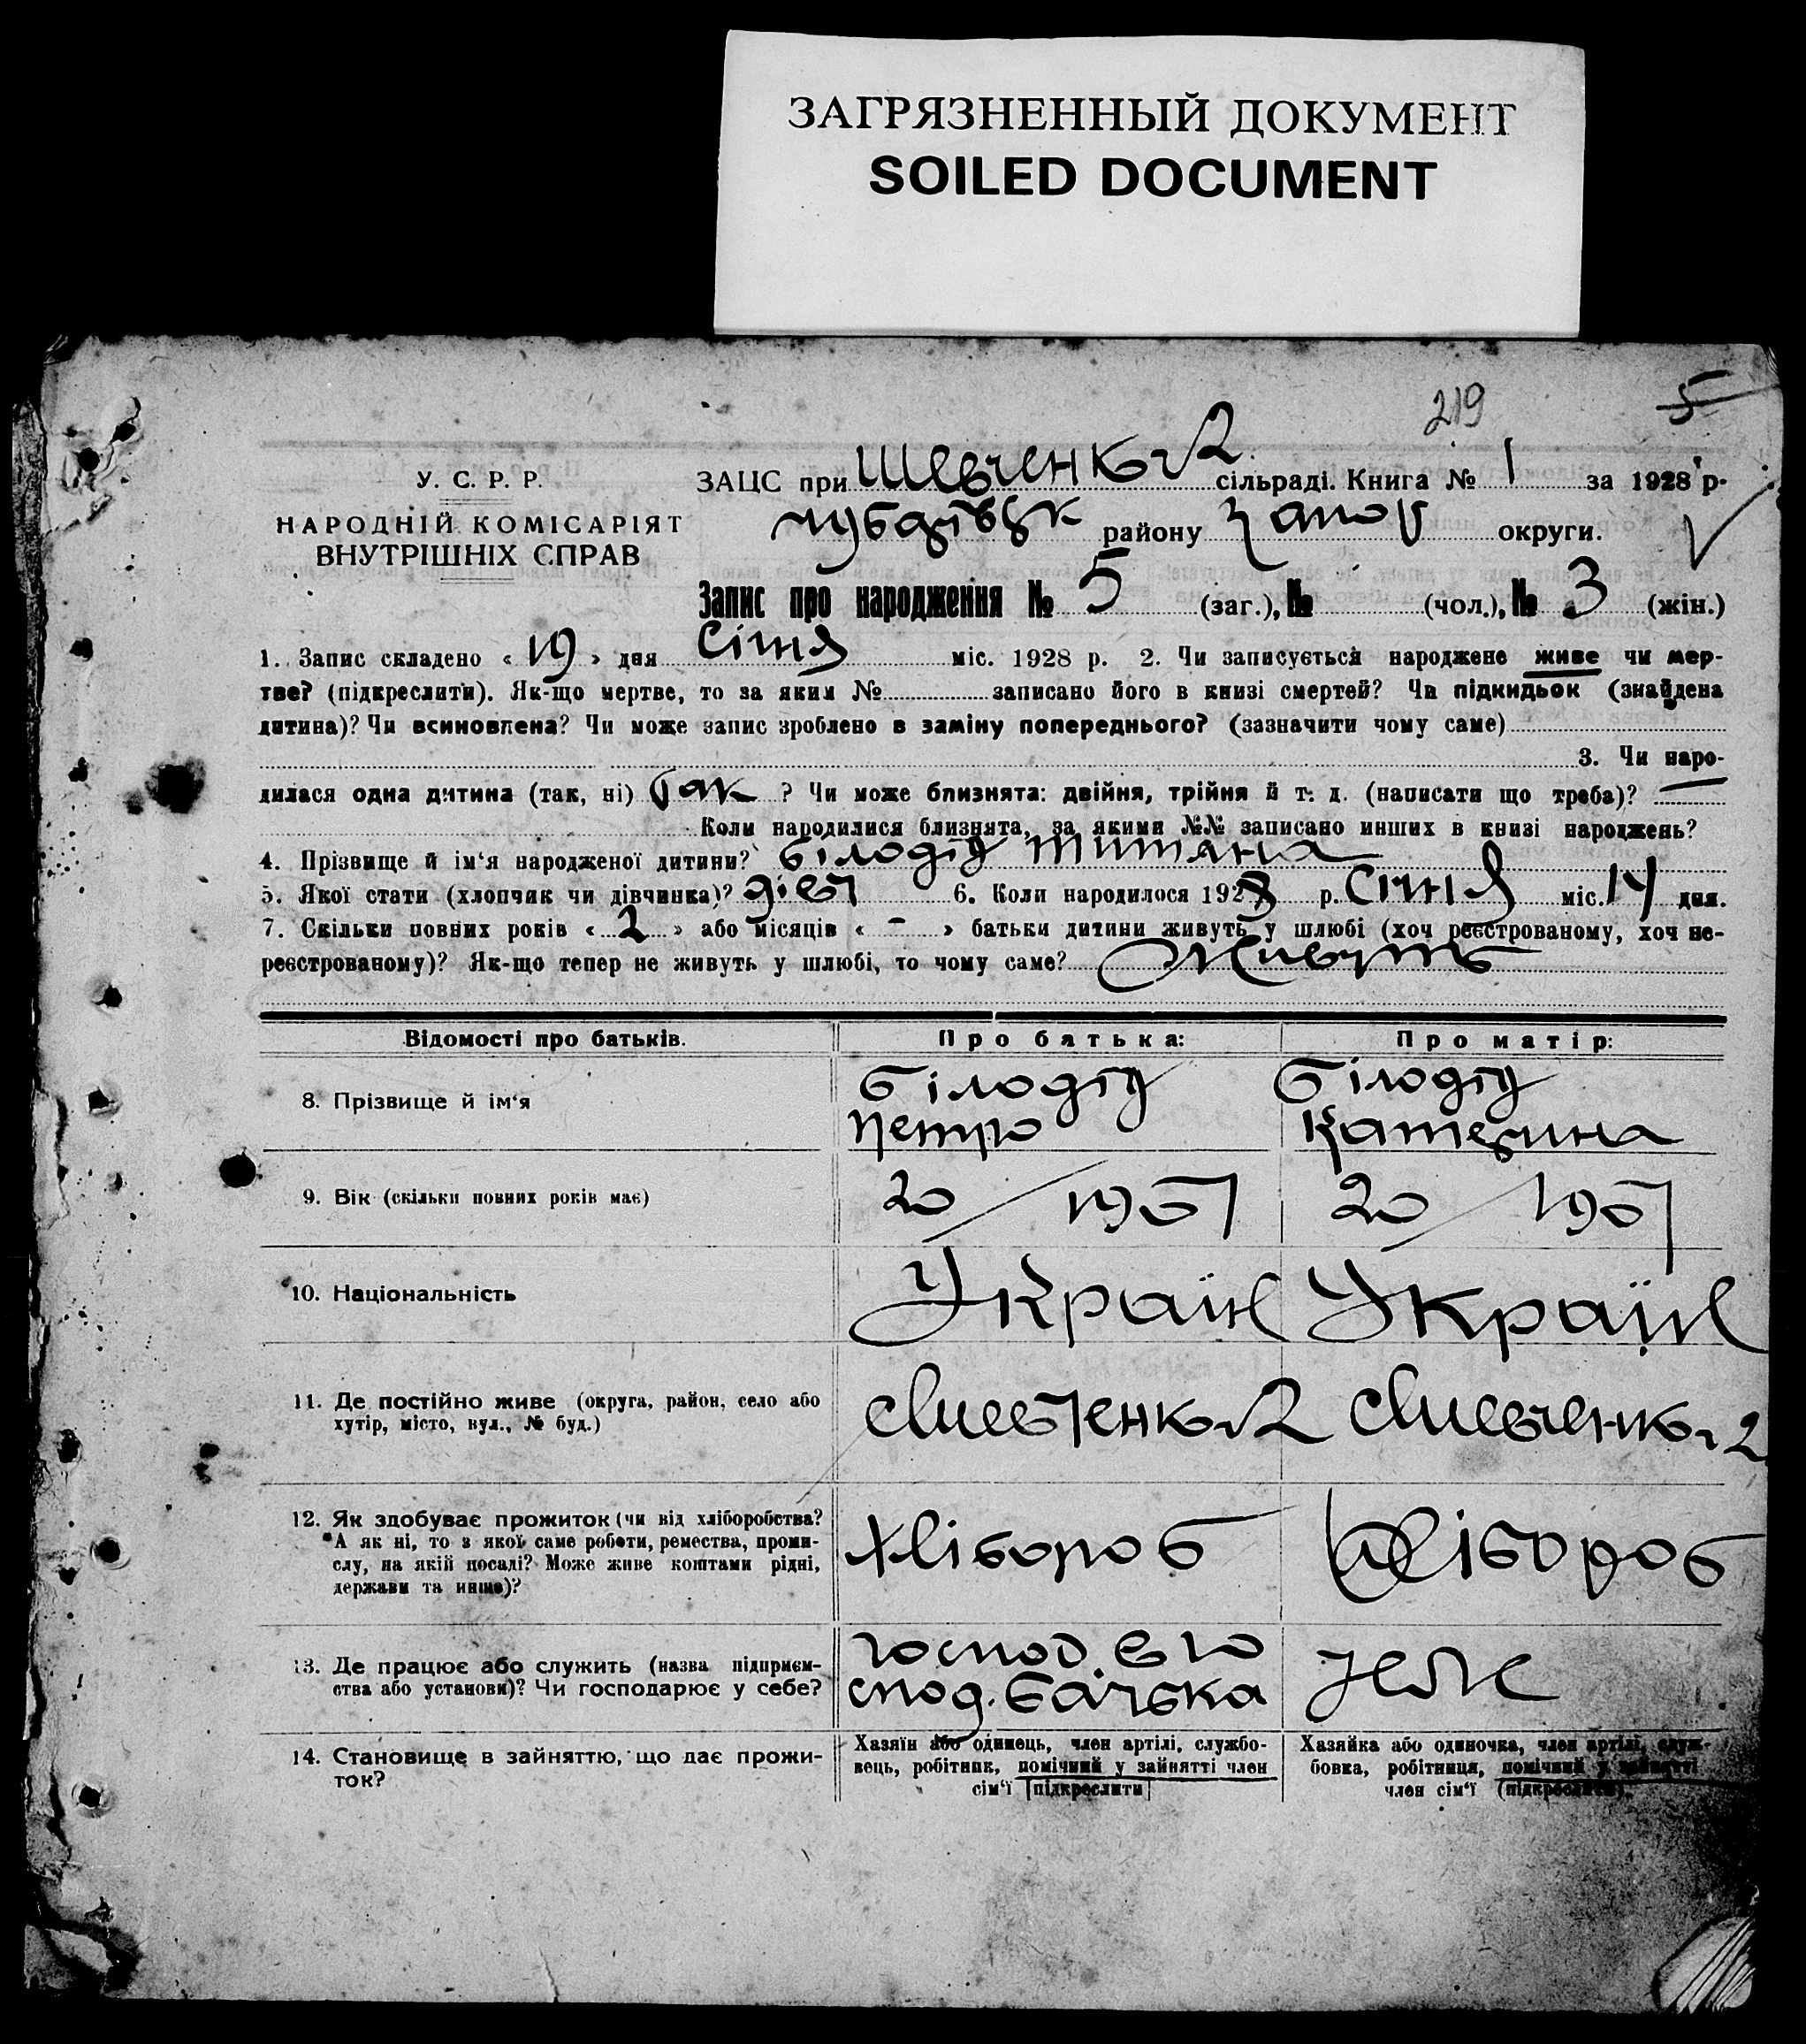 ЗАГРЯЗНЕННЫЙ ДОКУМЕНТ
SOILED DOCUMENT
219 5
У. С. Р. Р.
НАРОДНІЙ КОМІСАРІЯТ
ВНУТРІШНІХ СПРАВ
ЗАЦС при Шевченк сільраді. Книга № 1 за 1928 р.
району Запор округи.
Запис про народження № 5 (заг.), № (чол.), № 3 (жін.)
1. Запис складено « 19 » дня Січня міс. 1928 р. 2. Чи записується народжене живе чи мер-
тве? (підкреслити). Як-що мертве, то за яким № записано його в книзі смертей? Чи підкидьок (знайдена
дитина)? Чи всиновлена? Чи може запис зроблено в заміну попереднього? (зазначити чому саме)
3. Чи наро-
дилася одна дитина (так, ні) Так ? Чи може близнята: двійня, трійня й т. д. (написати що треба)?
Коли народилися близнята, за якими №№ записано инших в книзі народжень?
4. Прізвище й ім‘я народженої дитини? Білодід Титяна
5. Якої стати (хлопчик чи дівчинка)? дівч 6. Коли народилося 1928 р. Січня міс. 14 дня.
7. Скільки повних років « 2 » або місяців « - » батьки дитини живуть у шлюбі (хоч реєстрованому, хоч не-
реєстрованому)? Як-що тепер не живуть у шлюбі, то чому саме? Живуть
Відомості про батьків. Про батька: Про матір:
8. Прізвище й ім‘я Білодід Петро Білодід Катерина
9. Вік (скільки повних років має) 20 / 1907 20 / 1907
10. Національність Україн Україн
11. Де постійно живе (округа, район, село або
хутір, місто, вул., № буд.) Шевченк Шевченк
12. Як здобуває прожиток (чи від хліборобства?
А як ні, то з якої саме роботи, ремества, проми-
слу, на якій посаді? Може живе коштами рідні,
держави та инше)? Хлібороб Хлібороб
13. Де працює або служить (назва підприєм-
ства або установи)? Чи господарює у себе? господ. в го
спод. батька
14. Становище в зайняттю, що дає прожи-
ток?
Хазяїн або одинець, член артілі, службо-
вець, робітник, помічний у зайнятті член
сім‘ї (підкреслити)
Хазяйка або одиночка, член артілі, служ-
бовка, робітниця, помічний у зайнятті
член сім‘ї (підкреслити).